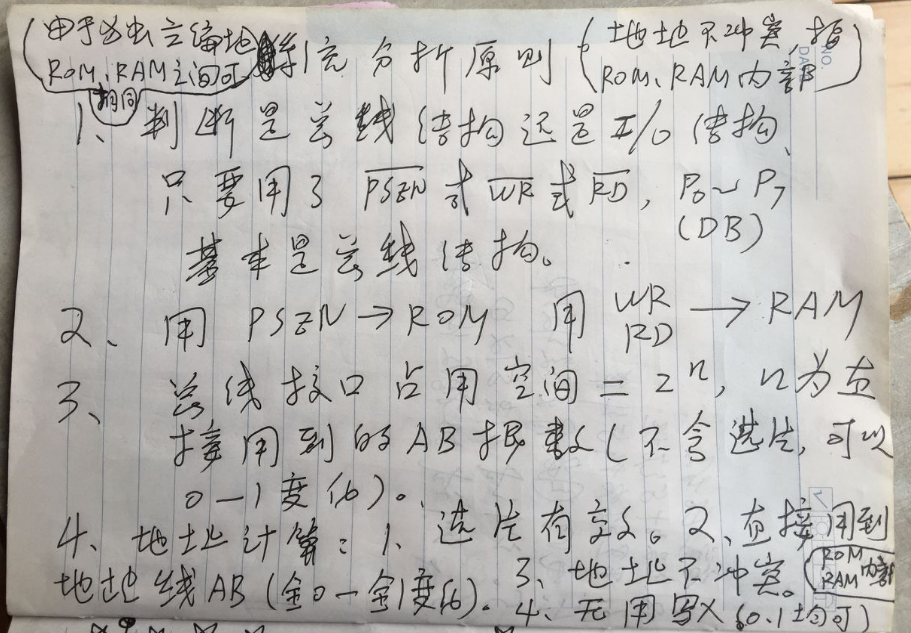 由于必由之编地
ROM、RAM之间可
相同
系统分析原则
地址不冲突,指
ROM、RAM内部
1、判断是总线结构还是I/O结构、
只要用了PSEN或WR或RD,P0~P7
(DB)
基本是总线结构。
2、用PSEN→ROM 用WR
RD→RAM
3、总线接口占用空间=2ⁿ,n为直
接用到的AB根数(不含选片,可以
0—1变化)。
4、地址计算:1、选片有效。2、直接用到
地址线AB(全0—全1变化)。3、地址不冲突。(ROM
RAM内部
4、无用写X(0.1均可)